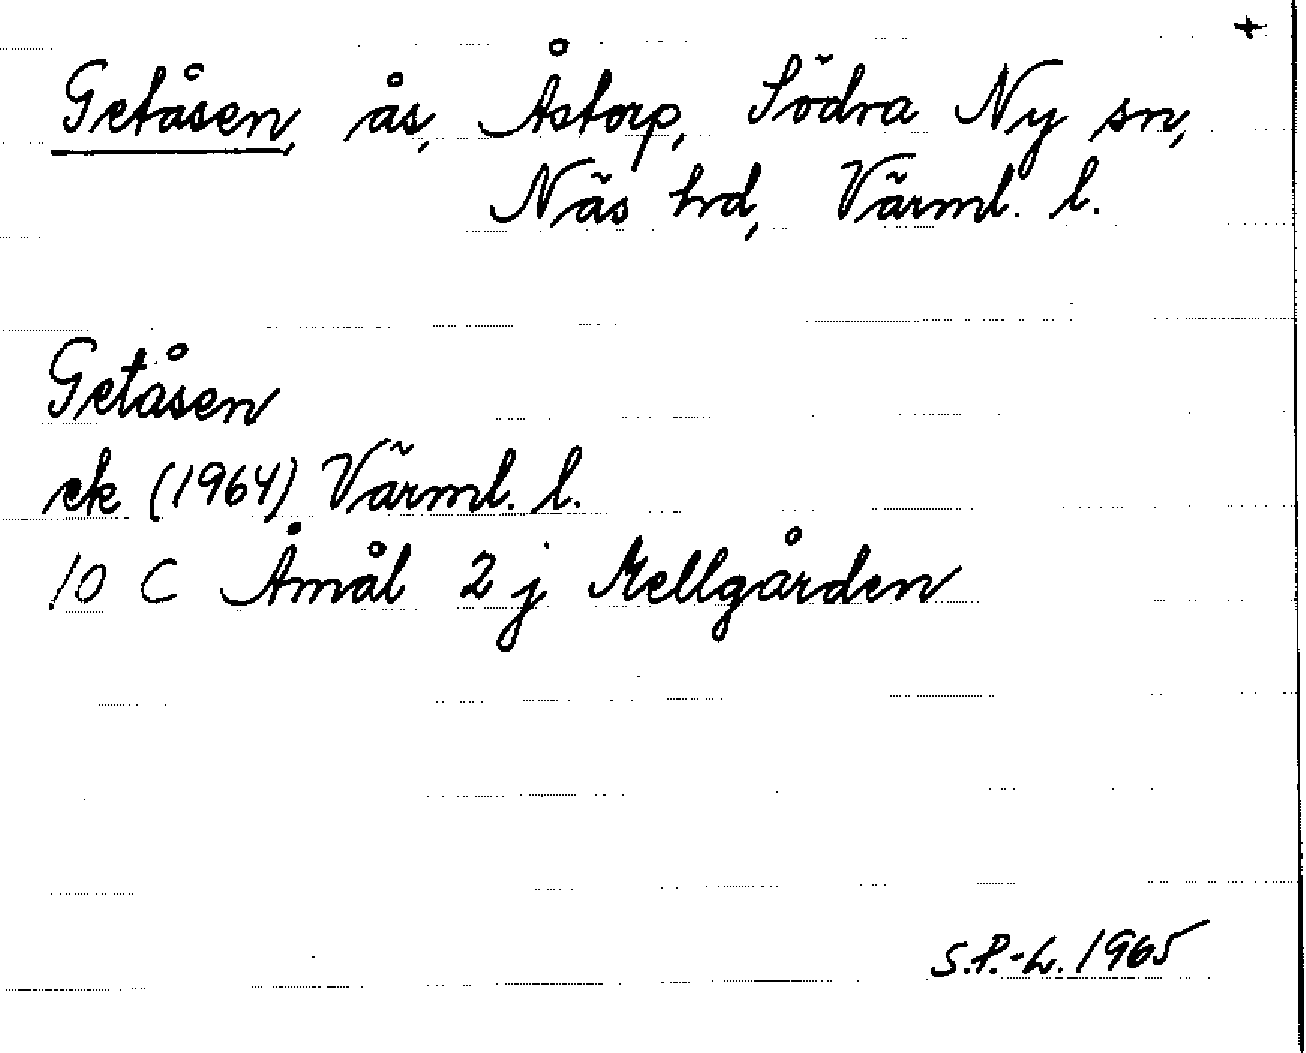 +
Getåsen, ås, Åstorp, Södra Ny sn,
Näs hrd, Värml. l.
Getåsen
ek (1964) Värml. l.
10 C Åmål 2 j Mellgården
S.P.-L. 1965